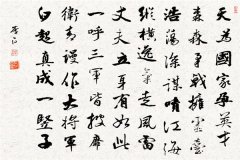 天為國家孕英才
森森矛戟擁靈臺
浩蕩深謀噴江海
縱橫逸氣走風雷
丈夫立身有如此
一呼三軍皆披靡
衛青謾作大將軍
白起真成一竪子